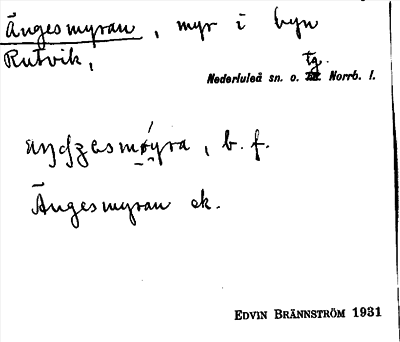 Ängesmyran, myr i byn
Rutvik,
Nederluleå sn. o. tg. Norrb. l.
b. f.
Ängesmyran ek.
EDVIN BRÄNNSTRÖM 1931